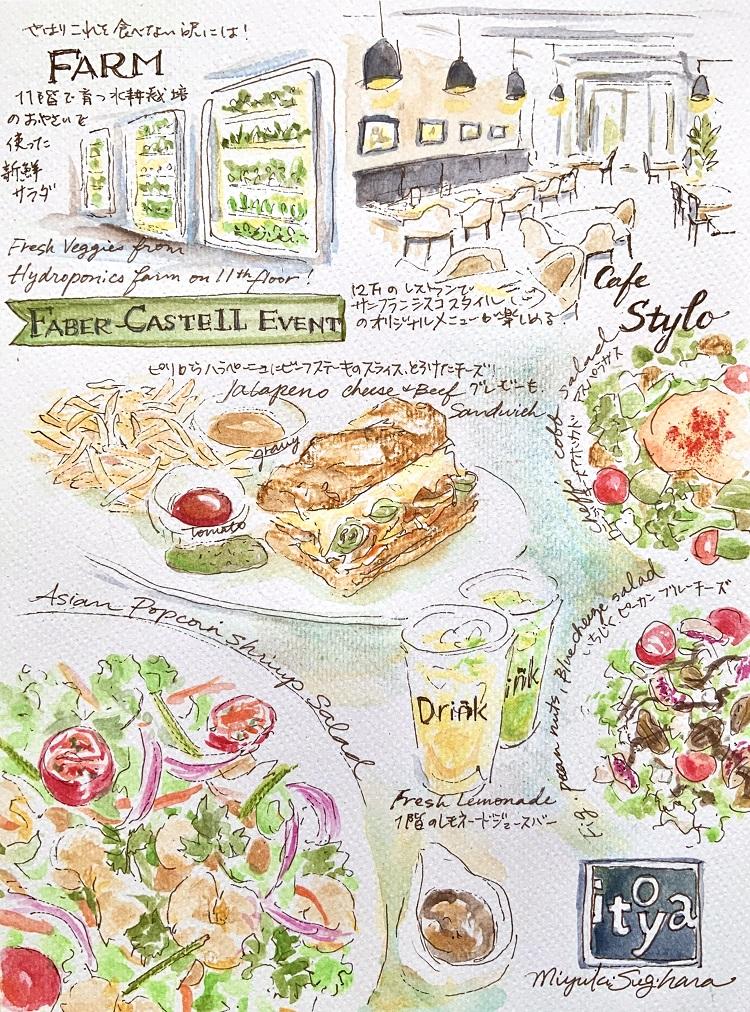 やはりこれを食べない訳には!
FARM
11階で育つ水耕栽培
のおやさいを
使った
新鮮
サラダ
Fresh Veggies from
Hydroponics farm on 11th floor!
12Fのレストランで
サンフランシスコスタイル
のオリジナルメニューが楽しめる!
Cafe
Stylo
FABER-CASTELL EVENT
ピリ辛ハラペーニョにビーフステーキのスライス、とろけたチーズ!
Jalapeno cheese & Beef グレービーも
Sandwich
gravy
tomato
cobb salad
アスパラガス
アボカド
Asian Popcorn shrimp salad
Fig, pecan nuts, Blue cheese salad
いちじく ピーカン ブルーチーズ
Drink
ink
Fresh Lemonade
1階のレモネードジュースバー
itoya
Miyuki Sugihara